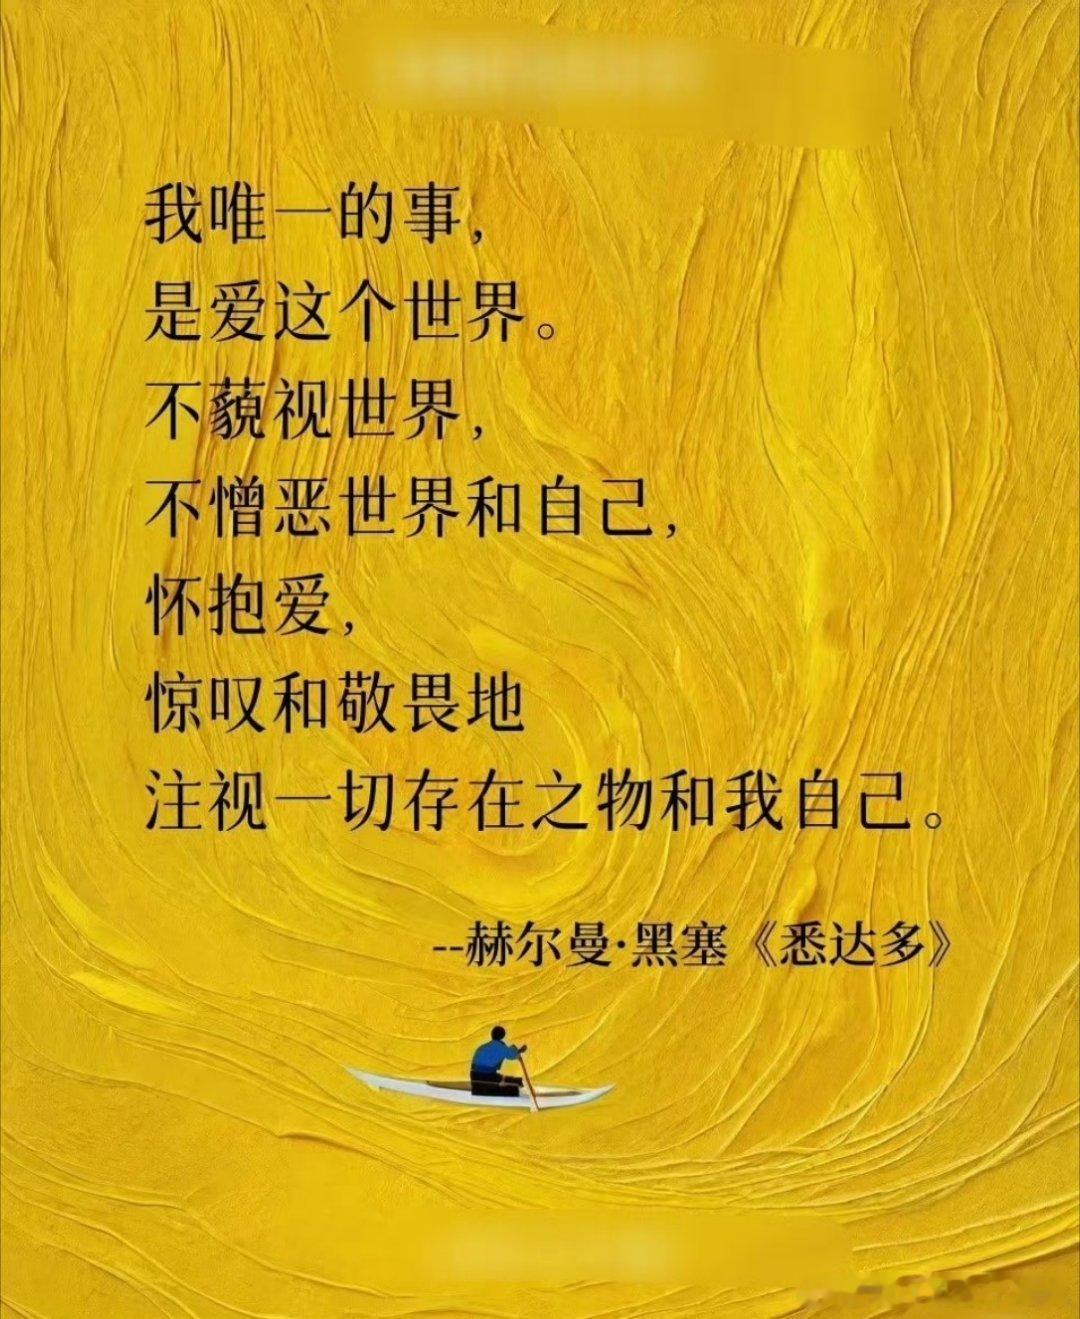 我唯一的事，
是爱这个世界。
不藐视世界，
不憎恶世界和自己，
怀抱爱，
惊叹和敬畏地
注视一切存在之物和我自己。
--赫尔曼·黑塞《悉达多》